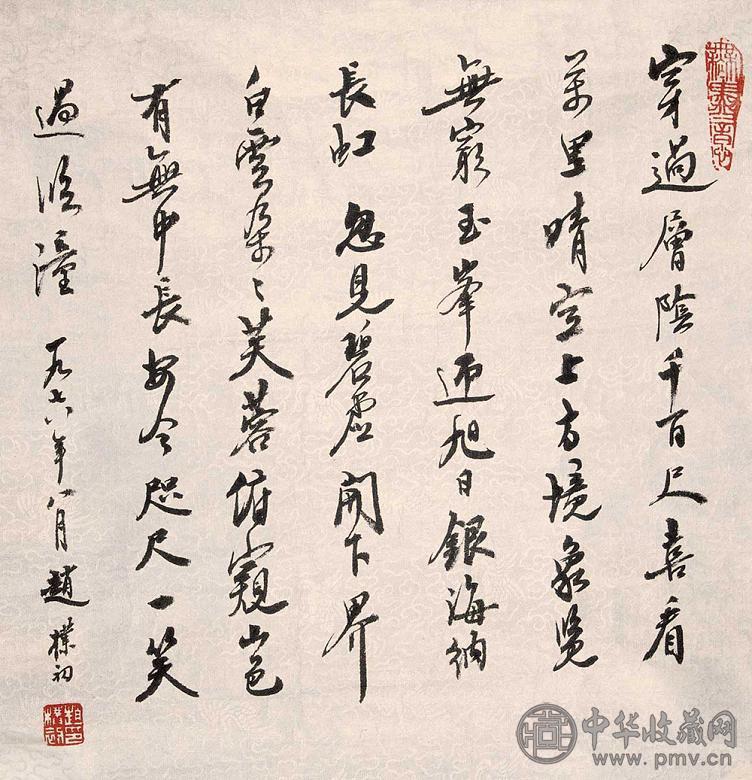 穿過層陰千百尺喜看
萬里晴空上方境象覽
無窮玉峯迎旭日銀海納
長虹 忽見碧虛開下界
白雲朵〻芙蓉俯窺山色
有無中長安今咫尺一笑
過臨潼 一九七八年八月 趙樸初
中华收藏网
www.pmv.cn